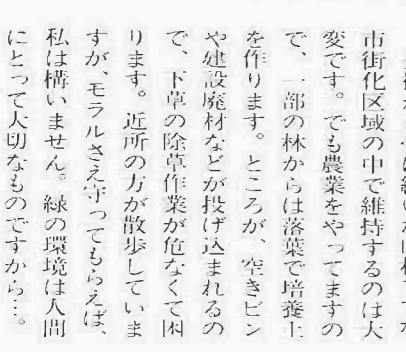 市街化区域の中で維持するのは大
変です。でも農業をやってますの
で、一部の林からは落葉で培養土
を作ります。ところが、空きビン
や建設廃材などが投げ込まれるの
で、下草の除草作業が危なくて困
ります。近所の方が散歩していま
すが、モラルさえ守ってもらえば、
私は構いません。緑の環境は人間
にとって大切なものですから…。